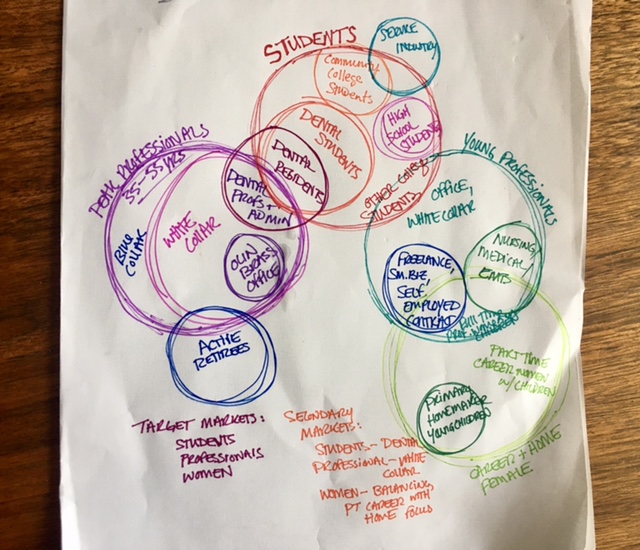 STUDENTS
SERVICE
INDUSTRY
COMMUNITY
COLLEGE
STUDENTS
HIGH
SCHOOL
STUDENTS
DENTAL
STUDENTS
DENTAL
RESIDENTS
DENTAL
PROFS +
ADMIN
OTHER COLLEGE
STUDENTS
PEAK PROFESSIONALS
35-55 YRS
BLUE
COLLAR
WHITE
COLLAR
OFFICE
ACTIVE
RETIREES
YOUNG PROFESSIONALS
OFFICE,
WHITE COLLAR
NURSING,
MEDICAL/
EMTS
FREELANCE,
SM. BIZ,
SELF
EMPLOYED
CONTRACT
PART TIME
CAREER WOMEN
W/CHILDREN
PRIMARY
HOMEMAKER
YOUNG CHILDREN
CAREER + HOME
FEMALE
TARGET MARKETS:
STUDENTS
PROFESSIONALS
WOMEN
SECONDARY
MARKETS:
STUDENTS - DENTAL
PROFESSIONAL - WHITE
COLLAR
WOMEN - BALANCING
PT CAREER WITH
HOME FOCUS